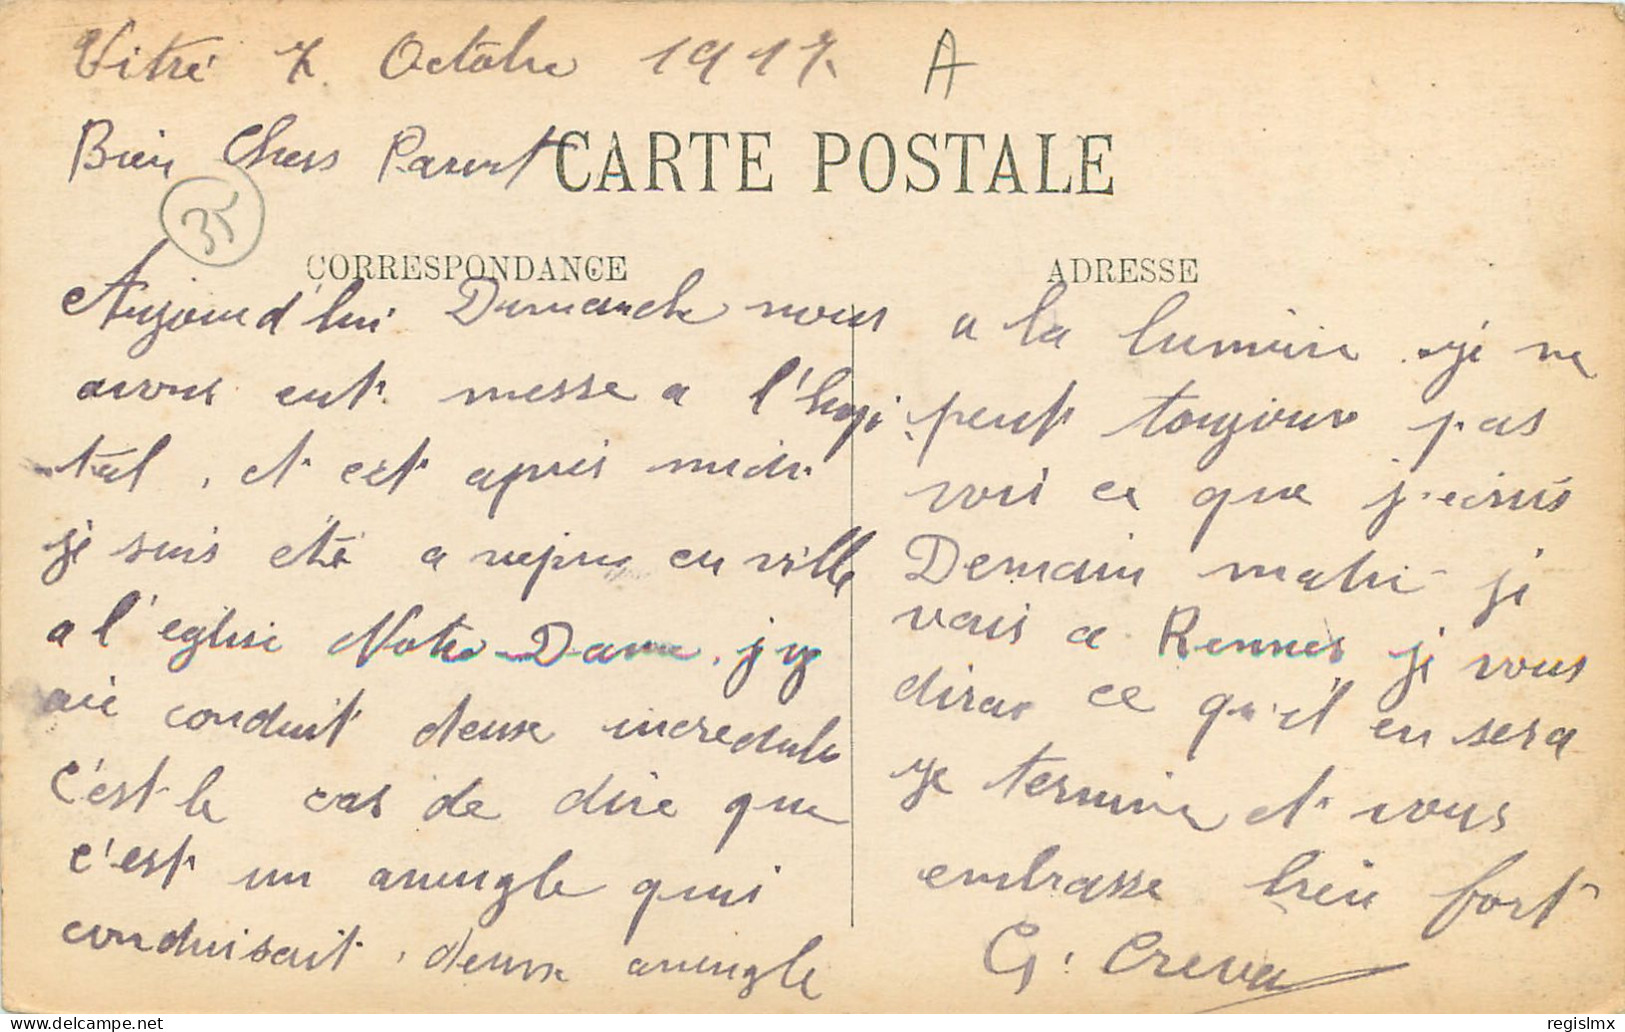 Vitré 7 Octobre 1917. A
Bien Chers Parent
CARTE POSTALE
35
CORRESPONDANCE
Aujourd'hui Dimanche nous
avons eut messe a l'hopi
tal, et cet apres midi
je suis été a vepres en ville
a l'eglise Notre-Dame, j'y
ai conduit deux incredule
c'est le cas de dire que
c'est un aveugle qui
conduisait deux aveugle
ADRESSE
a la lumière je ne
peut toujour pas
voir ce que j'ecris
Demain matin je
vais a Rennes je vous
dirai ce qu'il en sera
je termine et vous
embrasse bien fort
G. Creva
delcampe.net
regislmx